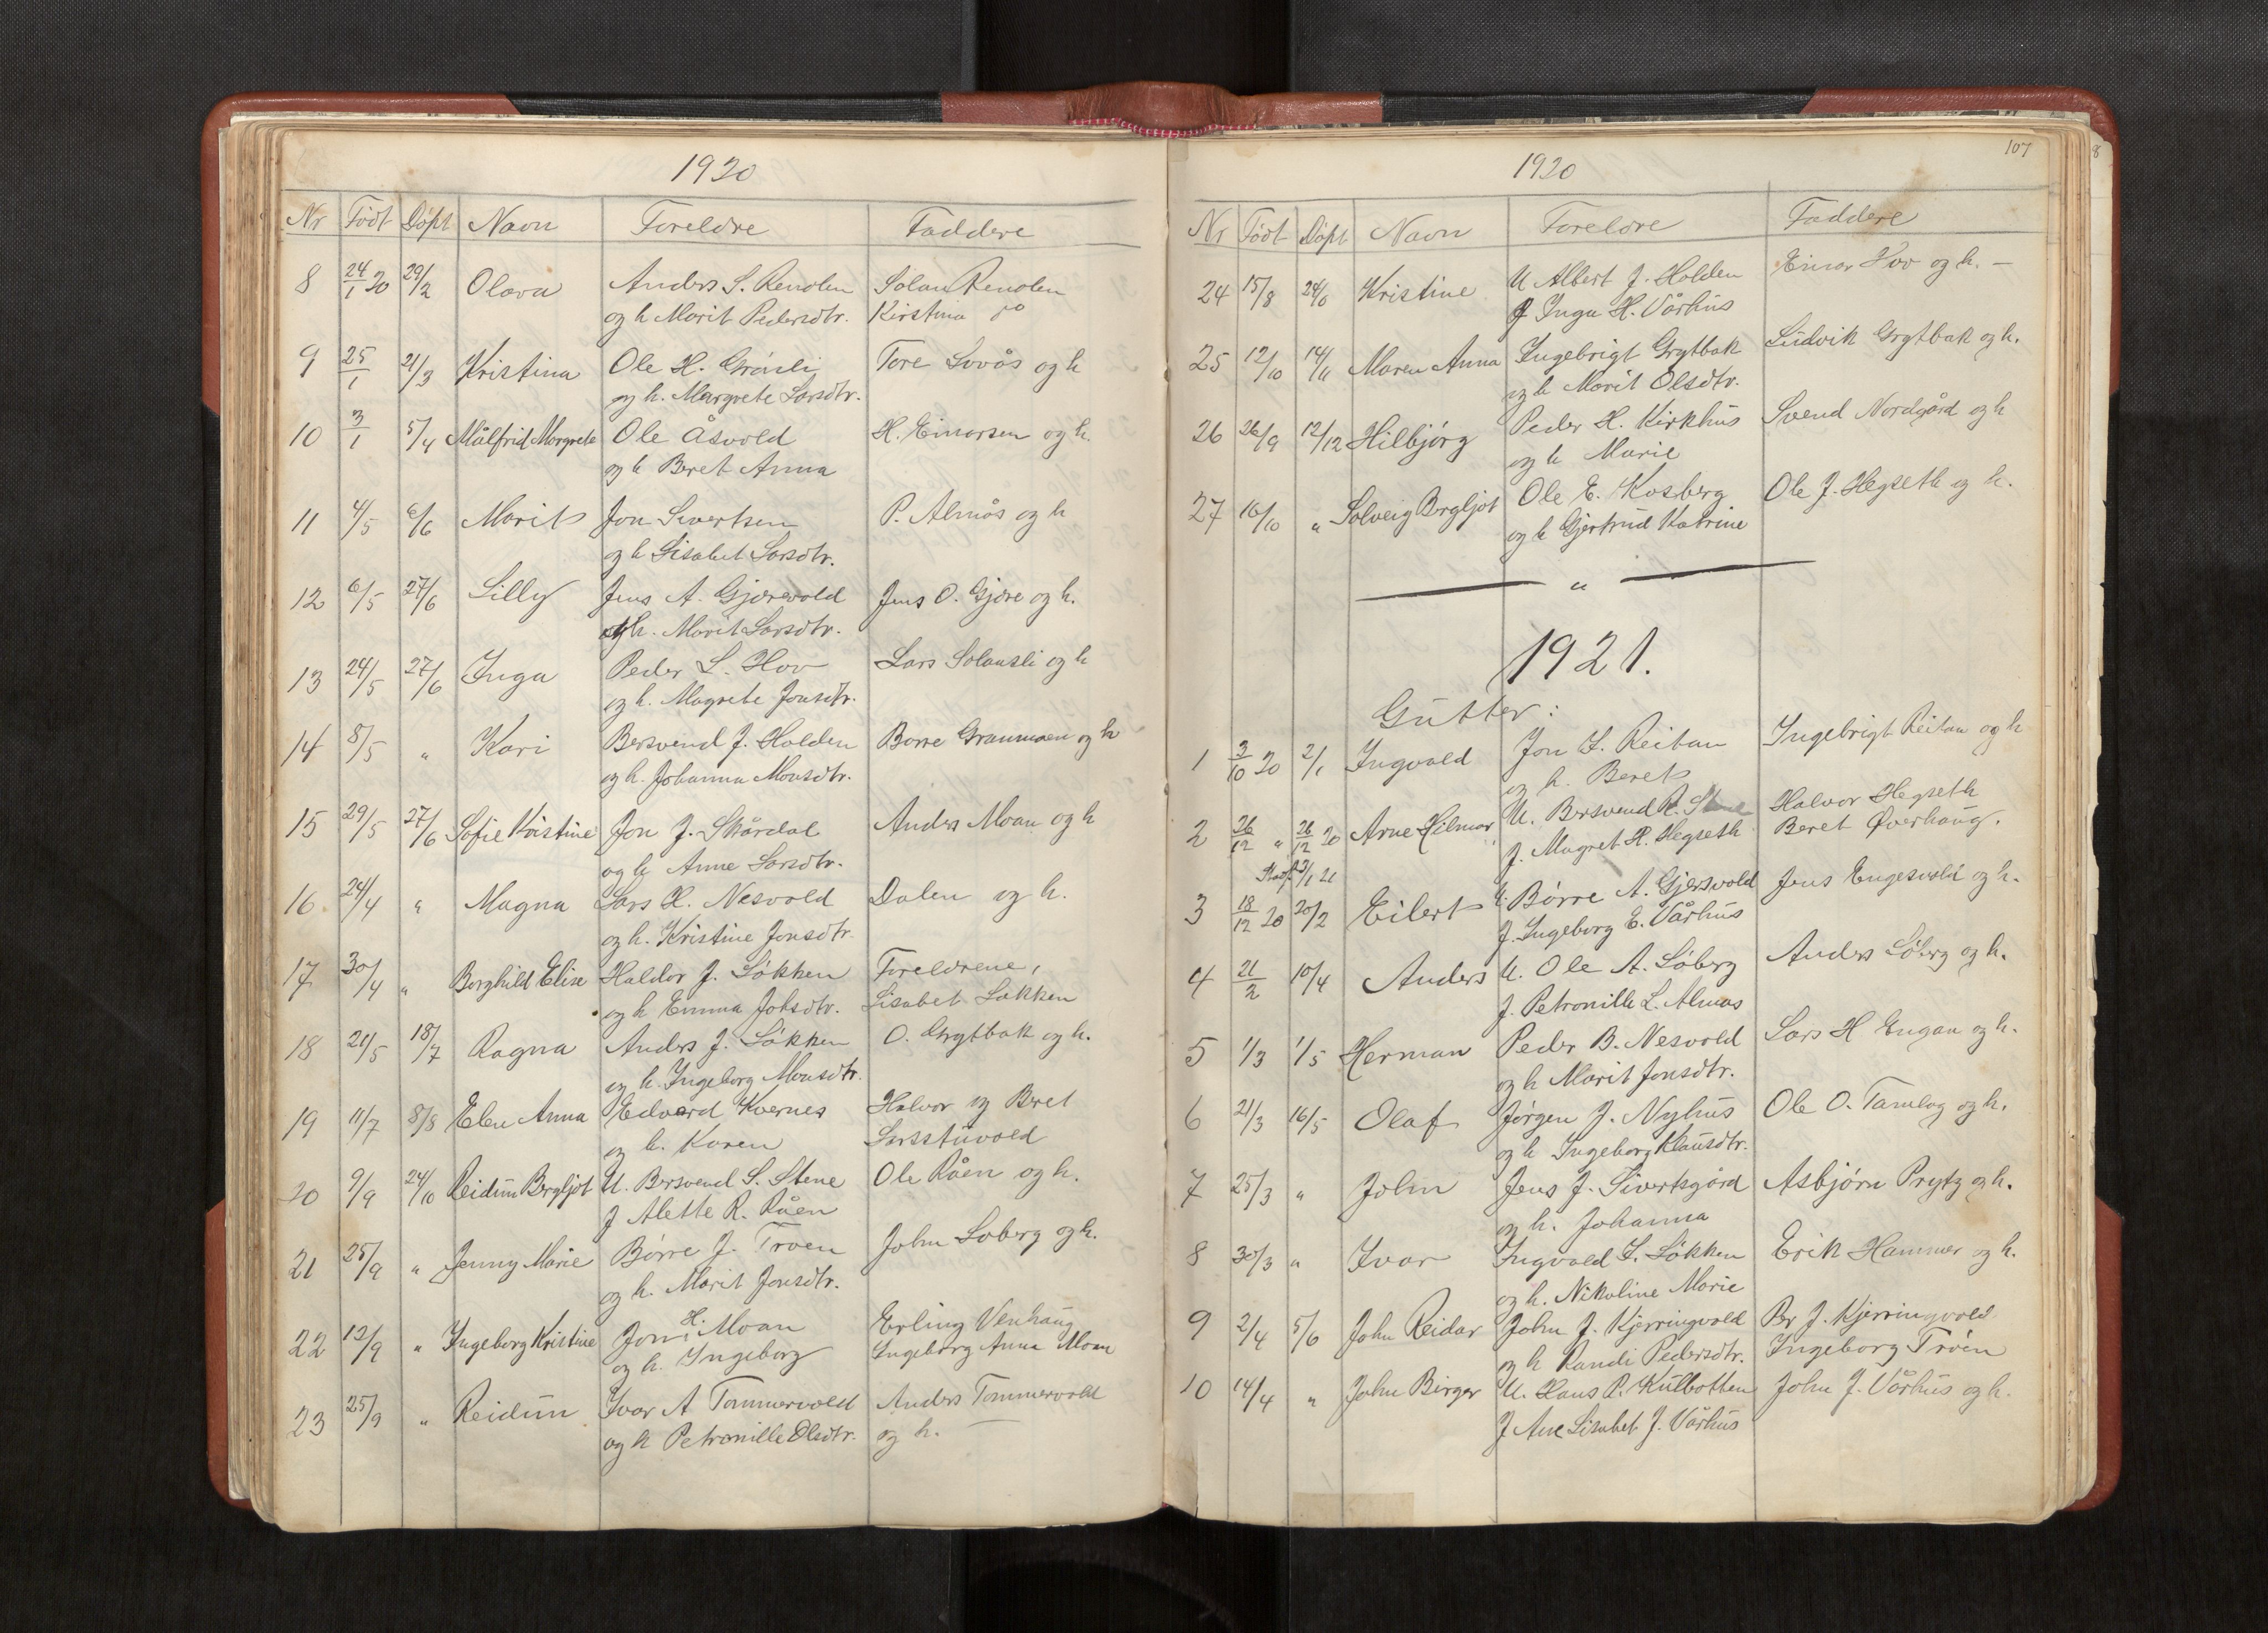 1920
Nr Født Døpt Navn Foreldre Faddere
8 24/1 20 29/2 Olava Anders S. Renolen Solan Renolen
og h Marit Pedersdtr. Kirstina do
9 25/1 21/3 Kristina Ole H. Grønli Tore Lovås og h
og h. Margrete Larsdtr.
10 3/1 5/4 Målfrid Margrete Ole Åsvold H. Einarsen og h.
og h Beret Anna
11 4/5 6/6 Marit Jon Sivertsen P. Almås og h
og h Lisabet Larsdtr.
12 6/5 27/6 Lilly Jens A. Gjærevold Jens O. Gjære og h.
og h. Marit Larsdtr.
13 24/5 27/6 Inga Peder L. Hov Lars Solemsli og h
og h. Magrete Jonsdtr.
14 8/5 " Kari Bersvend J. Holden Borre Granmoen og h
og h. Johanna Monsdtr.
15 29/5 27/6 Sofie Kristine Jon J. Skårdal Anders Moan og h
og h Anne Larsdtr.
16 24/4 " Magna Lars H. Nesvold Dalen og h.
og h. Kristine Jonsdtr.
17 30/4 " Borghild Elise Haldor J. Løkken Foreldrene,
og h Emma Johsdtr. Lisabet Løkken
18 21/5 18/7 Ragna Anders J. Løkken O. Grytbak og h.
og h. Ingeborg Monsdtr.
19 11/7 8/8 Elen Anna Edvard Kvernes Halvor og Beret
og h. Karen Larsstuvold
20 9/9 24/10 Reidun Bergljot U. Bersvend S. Stene Ole Råen og h.
J Alette R. Råen
21 25/9 " Jenny Marie Børre J. Trøen John Løberg og h.
og h. Marit Jonsdtr.
22 12/9 " Ingeborg Kristine Jon H. Moan Erling Venhaug
og h. Ingeborg Ingeborg Anna Moan
23 25/9 " Reidun Ivar A Tømmervold Anders Tømmervold
og h Petronille Olsdtr. og h.
107
1920
Nr Født Døpt Navn Foreldre Faddere
24 15/8 24/6 Kristine U Albert J. Holden Einar Hov og h. –
J Inga H. Vårhus
25 12/10 14/11 Maren Anna Ingebrigt Grytbak Ludvik Grytbak og h.
og h Marit Olsdtr.
26 26/9 12/12 Hilbjørg Peder H. Kirkhus Svend Nordgård og h
og h Marie
27 16/10 " Solveig Bergljot Ole E. Kosberg Ole J. Hegseth og h.
og h Gjertrud Katrine
"
1921.
Gutter:
1 3/10 20 2/1 Ingvald Jon I. Reitan Ingebrigt Reitan og h
og h. Beret
2 26/12 " 26/12 20 Arne Hilmar U. Bersvend R. Stene Halvor Hegseth
J. Magret H. Hegseth Beret Øverhaug.
/1 21
3 18/12 20 20/2 Eilert U. Børre A. Gjersvold Jens Engesvold og h.
J. Ingeborg E. Vårhus
4 21/2 10/4 Anders U. Ole A. Løberg Anders Løberg og h.
J. Petronille L. Almås
5 1/3 1/5 Herman Peder B. Nesvold Lars H Engan og h.
og h Marit Jonsdtr.
6 21/3 16/5 Olaf Jørgen J. Nyhus Ole O. Tamlag og h.
og h Ingeborg Klausdtr.
7 25/3 " John Jens J. Sivertsgård Asbjørn Prytz og h.
og h. Johanna
8 30/3 " Ivar Ingvald I. Løkken Erik Hammer og h.
og h. Nikoline Marie
9 2/4 5/6 John Reidar John J. Kjerringvold Br J. Kjerringvold
og h Randi Pedersdtr. Ingeborg Trøen
10 14/4 " John Birger U. Hans P. Kulbotten John J. Vårhus og h.
J Ane Lisabet J. Vårhus